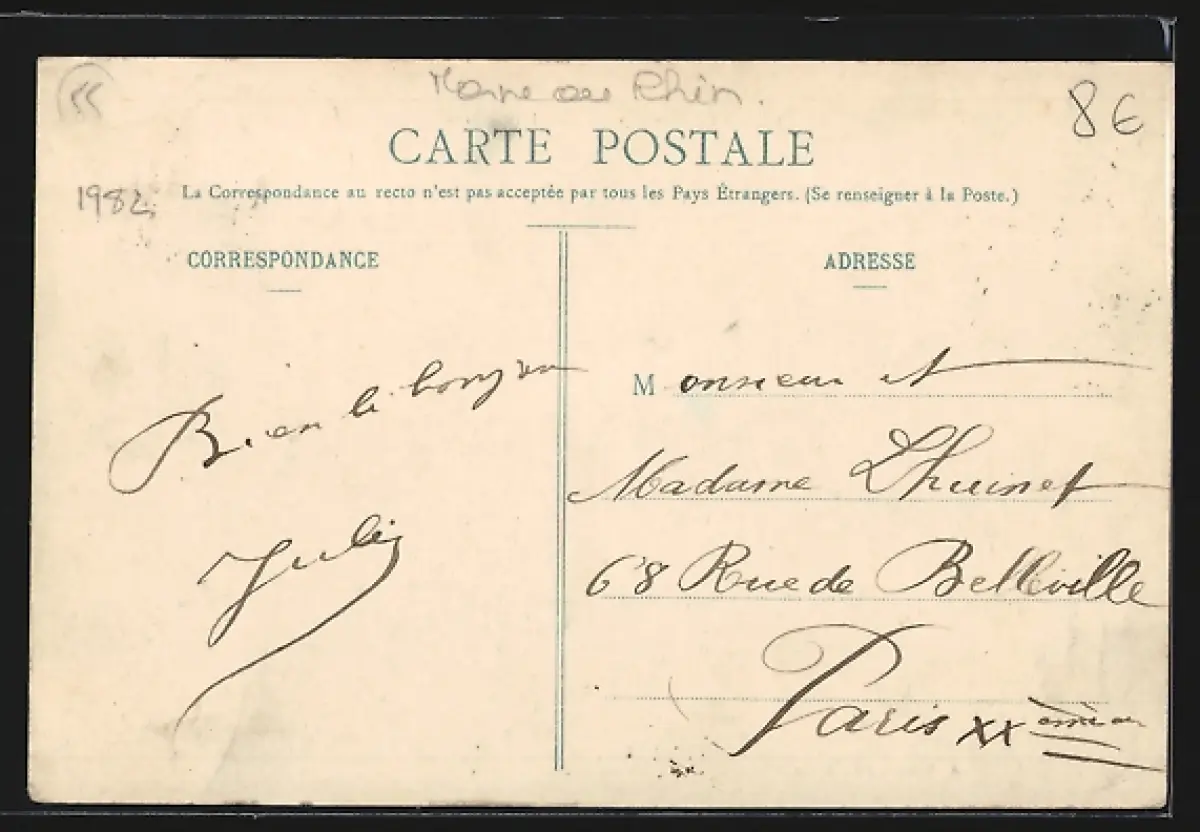 55
Marne au Rhin.
8€
CARTE POSTALE
1982
La Correspondance au recto n'est pas acceptée par tous les Pays Étrangers. (Se renseigner à la Poste.)
CORRESPONDANCE
Bien le bonjour
Julien
ADRESSE
Monsieur et
Madame Lhuinet
68 Rue de Belleville
Paris XX